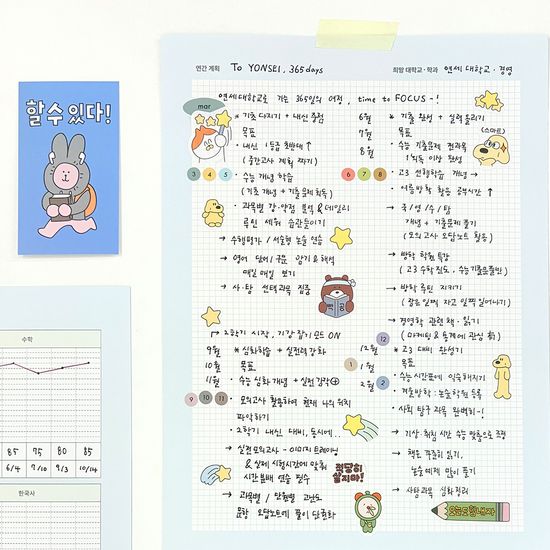 연간 계획 To YONSEI, 365days
희망 대학교·학과 연세대학교·경영
연세대학교로 가는 365일의 여정, time to FOCUS-!
mar
* 기초 다지기 + 내신 중점
목표
· 내신 1등급 초반대 ↑
(중간고사 계획 짜기)
3 4 5 · 수능 개념 학습
(기초 개념 + 기출문제 획득)
· 과목별 강·약점 분석 & 데일리
루틴 세워 습관들이기
→ 수행평가 / 서술형 논술 연습
→ 영어 단어/구문 암기 & 해석
매일매일 보기
→ 사·탐 선택과목 집중
→ 2학기 시작, 기강잡기 모드 ON
9월 * 심화학습 + 실전력 강화
10월 목표
11월 · 수능 심화 개념 + 실전 감각⊕
9 10 11 · 모의고사 활용하여 현재 나의 위치
파악하기
· 2학기 내신 대비, 동시에..
→ 실전 모의고사 - 이미지 트레이닝
& 실제 시험시간에 맞춰
시간분배 연습 필수
→ 과목별 / 단원별 고난도
문항 오답노트에 풀이 단권화
6월 * 기초 완성 + 실력 올리기
7월 목표
8월 · 수능 기출문제 전과목
1회독 이상 완성
(스마트)
6 7 8 · 고3 선행학습 개념 →
여름방학 활용 공부시간 ↑
· 국/영/수/탐
개념 + 기출문제 풀기
(모의고사 오답노트 활용)
→ 방학 학원 특강
→ 방학 루틴 지키기
(잠은 일찍 자고 일찍 일어나기)
→ 경영학 관련 책·읽기
(마케팅 & 통계에 관심 有)
12
12월 * 고3 대비 완성기
1 1월 목표
2월 2 · 수능 시간표에 익숙해지기
· 겨울방학·논술학원 등록
· 사회탐구 과목 완벽히-!
→ 기상·취침 시간 수능 맞춤으로 조정
→ 책은 꾸준히 읽기,
논술 예제 많이 풀기
→ 사탐과목 심화 정리
적당히 살지마!
오늘도힘내자
할 수 있다!
수학
85 75 80 85
6/4 7/10 9/3 10/14
한국사